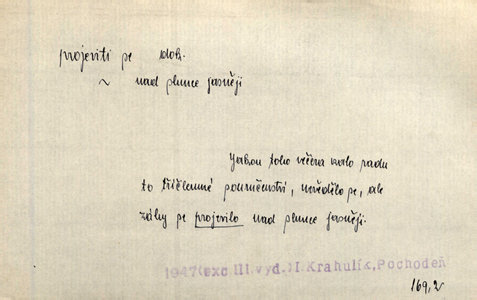 projeviti se dok.
~ nad slunce jasněji
Jakou toho večera vzalo radu
to tříčlenné poručenství, nevědělo se, ale
záhy se projevilo nad slunce jasněji.
1947(exc III.vyd.)I.Krahulík,Pochodeň
169,2